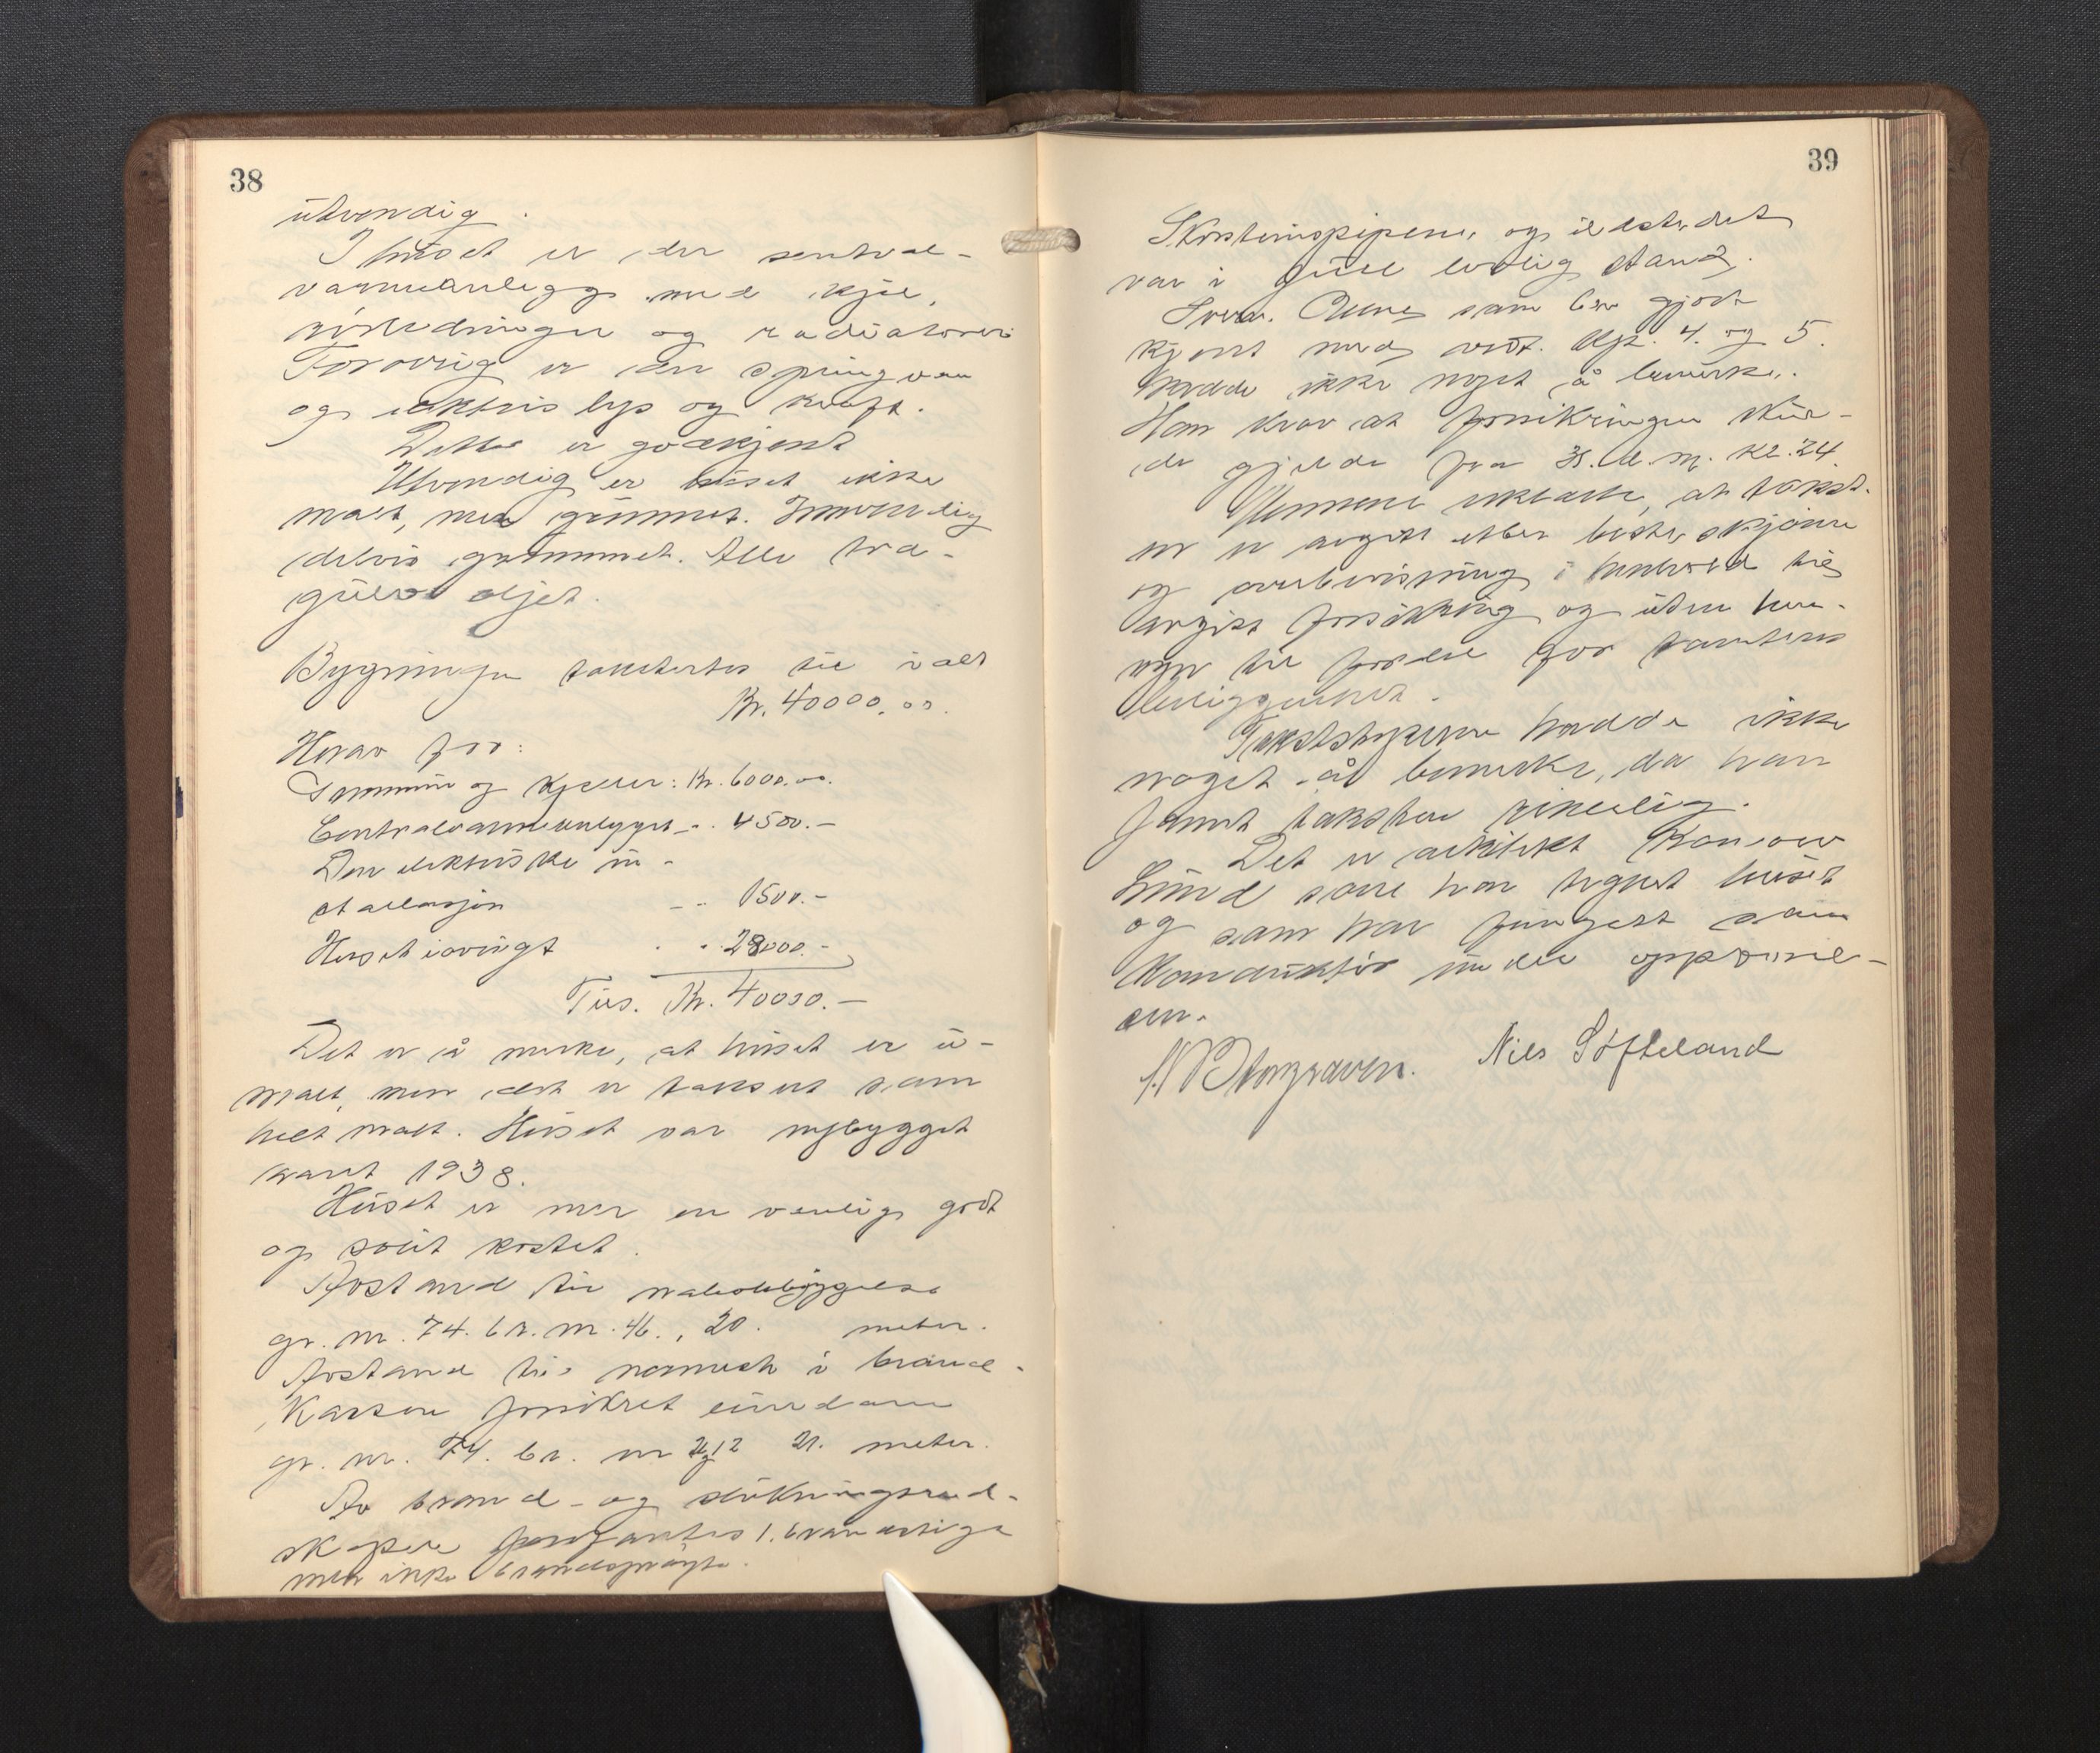 38
utvendig.
I huset er der sentral-
varmeanlegg med kjel,
rörledninger og radiatorer.
Forövrig er der springvan
og elektris lys og kraft.
Dette er godkjent
Utvendig er huset ikke
malt, men grunnet. Innvendig
delvis grunnet. Alle tre-
gulv oljet.
Bygningen taksertes til i alt
Kr. 40000,00.
Herav for:
Grunnmur og Kjeller: Kr. 6000.00.
Centralvarmeanlegget - . 4500.-
Den elektriske in-
stallasjon - . 1500.-
Huset iövrigt . . 28000.-
Tils. Kr. 40000.-
Det er å merke, at huset er u-
malt, men det er taksert som
helt malt. Huset var nybygget
1938.
Huset er mer en vanlig godt
og solit kostet.
Avstand til nabobebyggelse
gr. nr. 74. br. nr. 46., 20. meter.
Avstand til nermeste i brand-
Kassen forsikret eiendom
gr. nr. 74. br. nr 12 21. meter.
Av brand- og slukningsred-
skaper forefantes 1. brandstige
men ikke brandsprøyte.
39
Skorsteinspipene og ildstedet
var i full lovlig stand.
som blev gjort
kjent med vedt. Kp. 4. og 5.
hadde ikke noget å bemerke.
Han krav at forsikringen skul-
de gjelde fra 31. d. m. kl. 24.
Mennene erklærte, at takst-
en er avgitt etter beste skjönn
og overbevisning i henhold til
avgitt forsikring og uten hen-
syn til fordel for tomtens
beliggenhet.
Takstbestyreren hadde ikke
noget å bemerke, da han
fannt taksten rimelig.
Det er arkitekt Konow
Lund som har tegnet huset
og som har fungert som
Konduktör under oppförel-
sen.
Nils Softeland